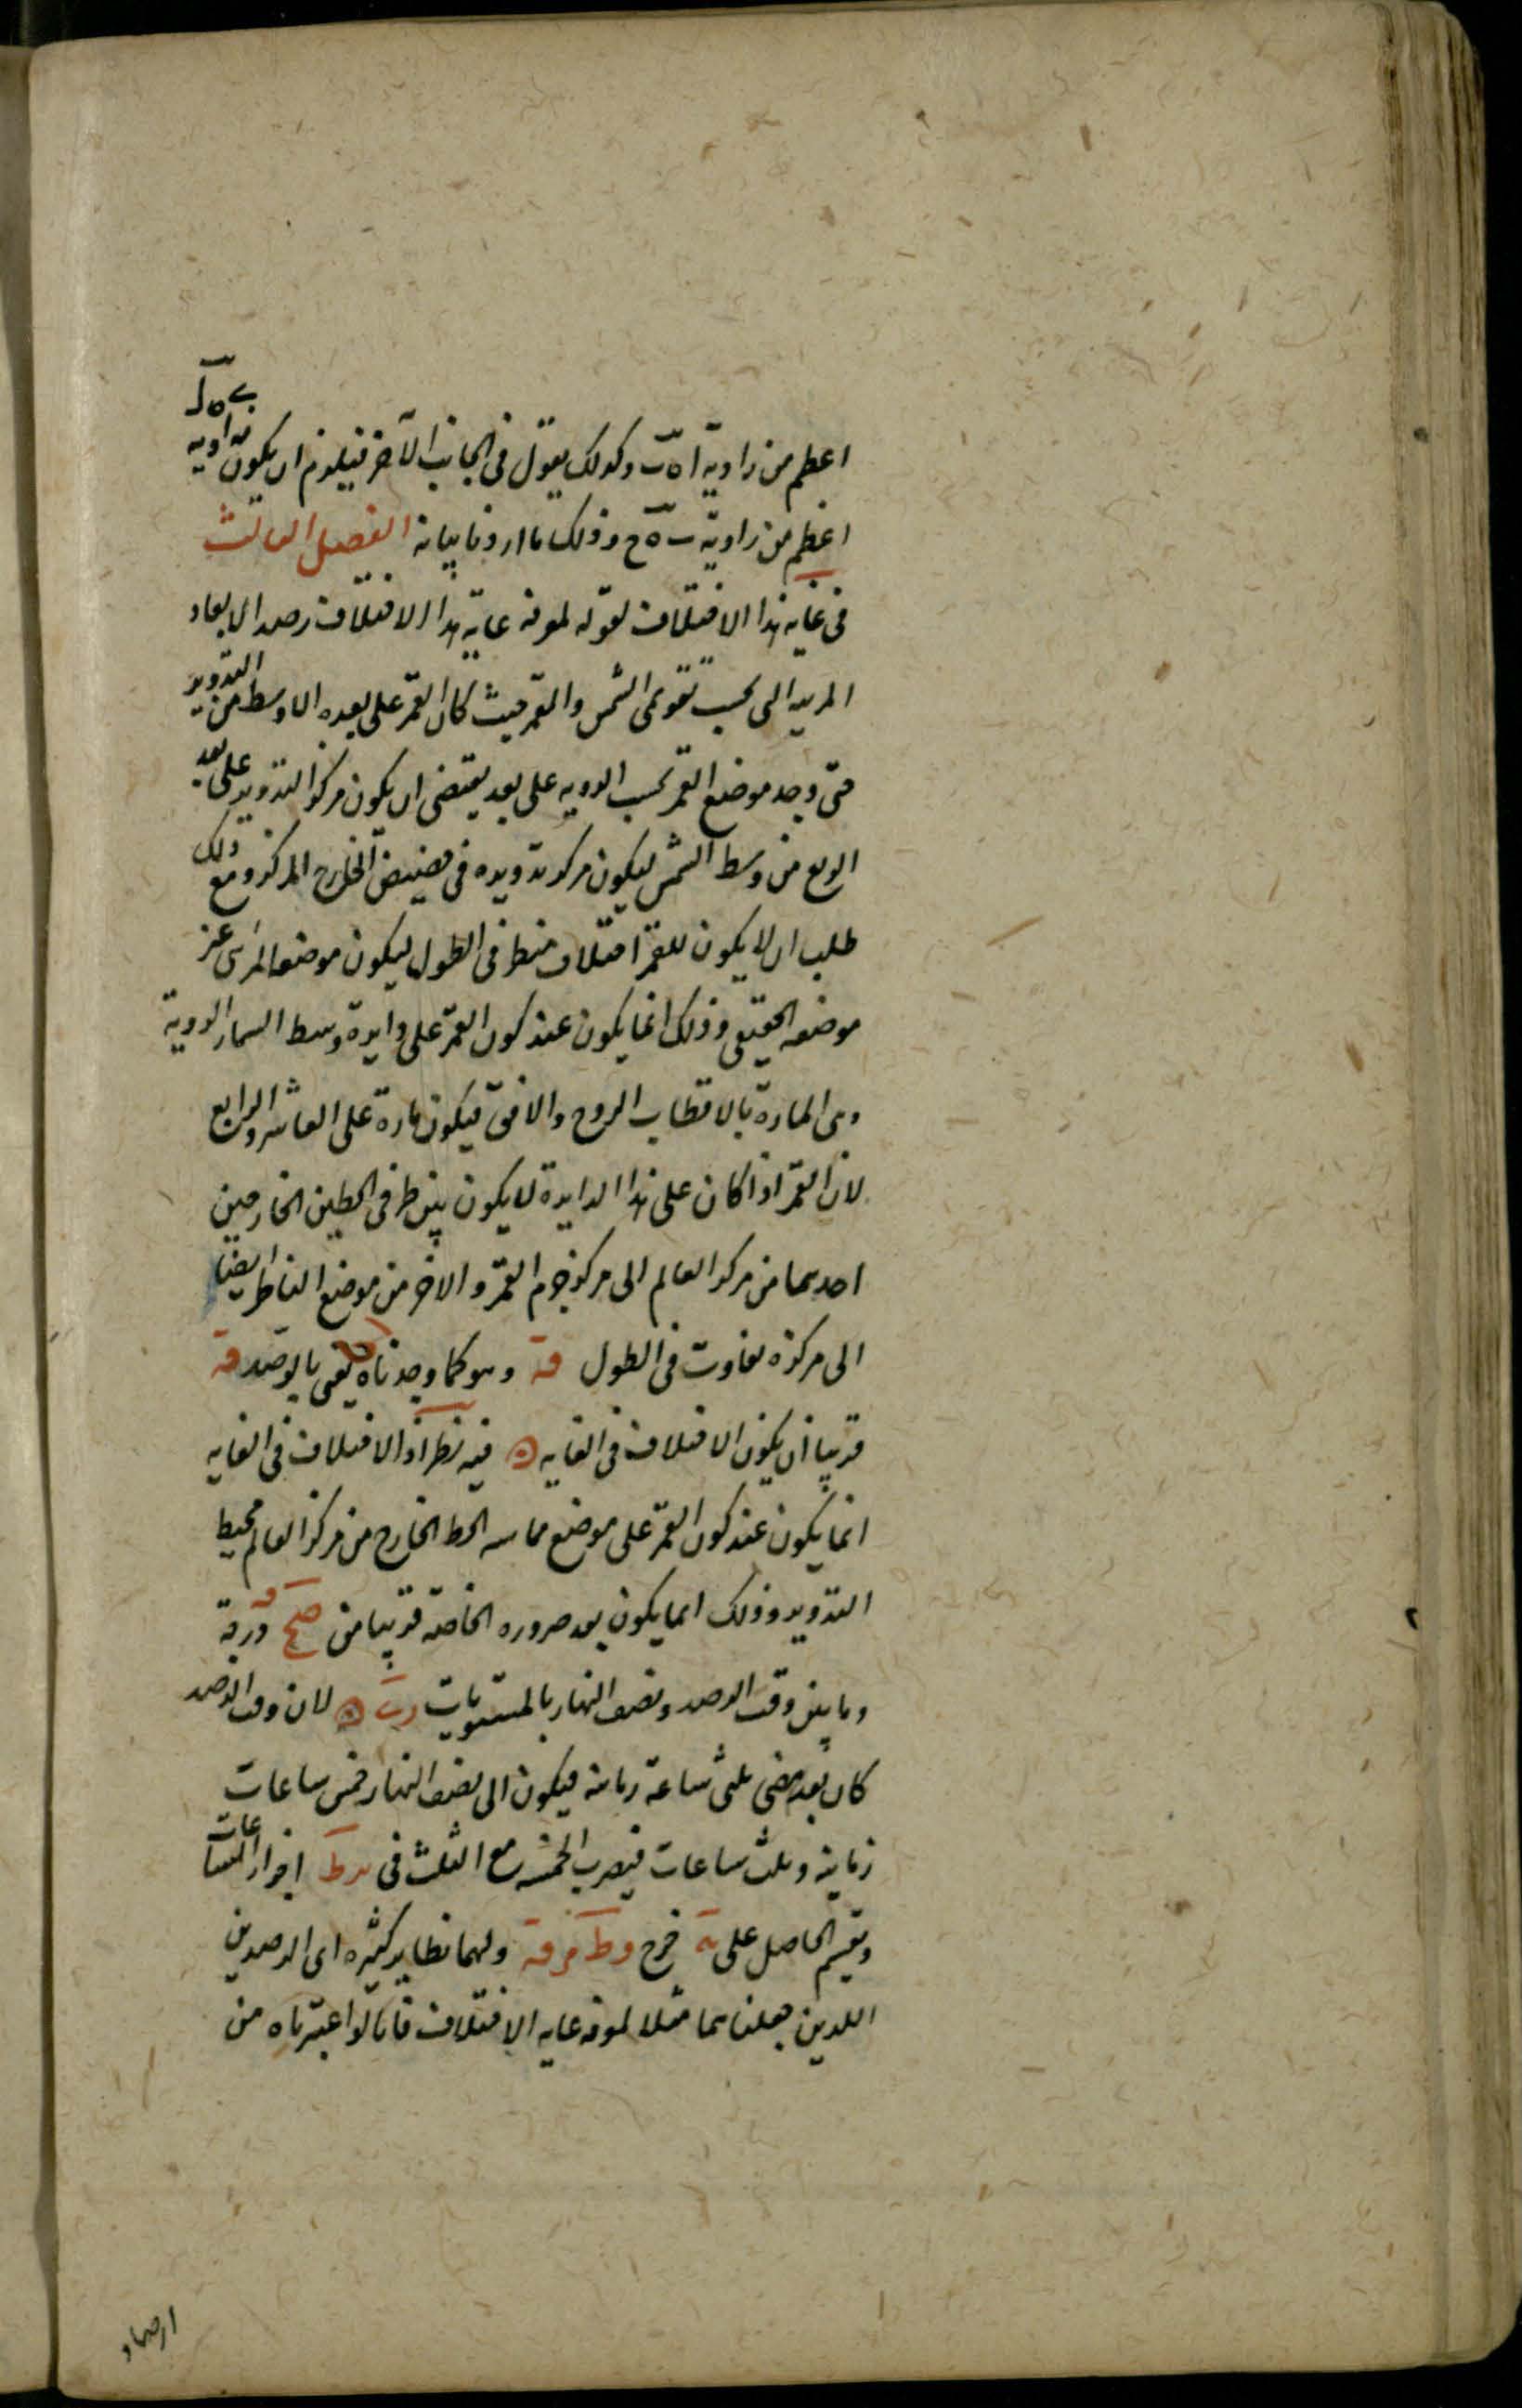 ى ه ل
اعظم من زاوية ا ه ب وكذلك يقول فى الجانب الآخر فيلزم ان يكون زاوية
اعظم من زاوية ب ه ح وذلك ما اردنا بيانه الفصل الثالث
فى غاية هذا الاختلاف قوله لمعرفة غاية هذا الاختلاف رصد الابعاد
المرئية التى بحسب تقويمى الشمس والقمر حيث كان القمر على بعده الاوسط من التدوير
متى وجد موضع القمر بحسب الرويه على بعد يقتضى ان يكون مركز التدوير على بعد
الربع من وسط الشمس ليكون مركز تدويره فى حضيض الخارج المركز ومع ذلك
طلب ان لا يكون للقمر اختلاف منظر فى الطول ليكون موضعه المرئى عن
موضعه الحقيقى وذلك انما يكون عند كون القمر على دايرة وسط السماء الروية
وهى المارة بالاقطاب البروج والافق فيكون مارة على العاشر والرابع
لان القمر اذا كان على هذا الدايرة لا يكون بين طرفى الخطين الخارجين
احدهما من مركز العالم الى مركز جرم القمر والاخر من موضع الناظر ايضا
الى مركزه تفاوت فى الطول قه وهو كما وجدناه يعنى بالرصد قه
قريبا ان يكون الاختلاف فى الغايه ه فيه نظر اذ الاختلاف فى الغايه
انما يكون عند كون القمر على موضع مماسه الخط الخارج من مركز العالم محيط
التدوير وذلك انما يكون بعد صروره الخاصه قريبا من صح درقه
وما بين وقت الرصد ونصف النهار بالمستويات ه لان وقت الرصد
كان بعد مضى ثلثى ساعة زمانية فيكون الى نصف النهار خمس ساعات
زمانية وثلث ساعات فيضرب الخمسه مع الثلث فى اجزاء الساعات
ويقسم الحاصل على يه خرج ولهما نظاير كثيره اى الرصدين
اللذين جعلناهما مثلا لمعرفه غايه الاختلاف فانا لو اعتبرناه من
ارصاد